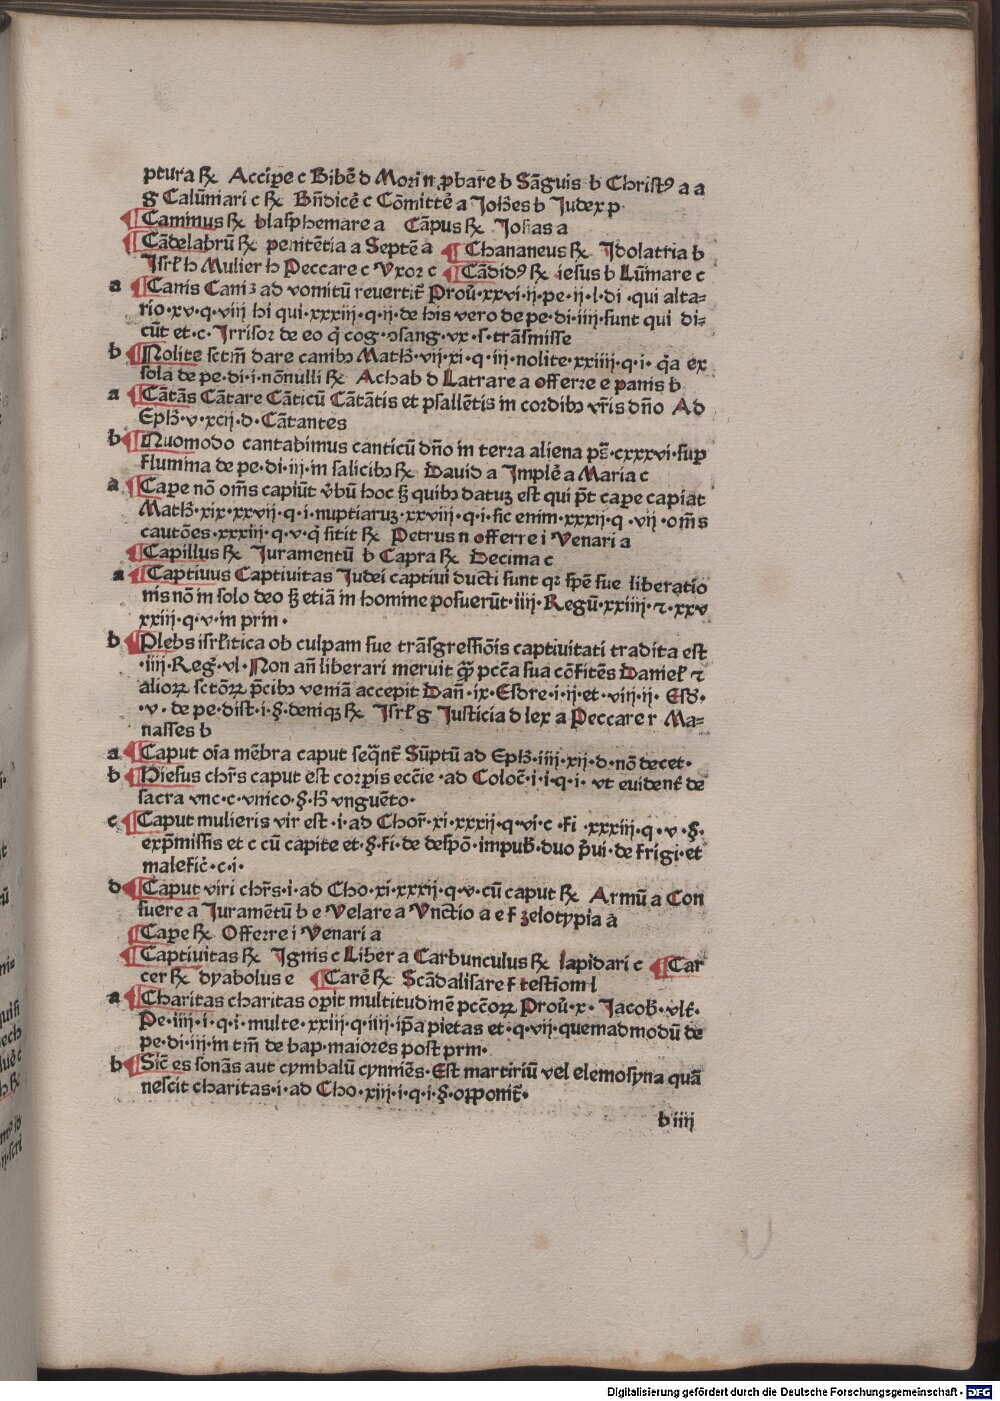 ptura ℞ Accipe c Bibē d Mori n ꝓbare b Sāguis b Christꝰ a a
g Calūniari c ℞ Bn̄dicē c Cōmittē a Joh̄es b Judex p
¶Caminus ℞ blasphemare a Cāpus ℞ Josias a
¶Cādelabrū ℞ penitētia a Septē a ¶Chananeus ℞ Jdolatria b
Jsrł h Mulier h Peccare c Vxor c ¶Cādidꝰ ℞ iesus b Lūinare c
a ¶Canis Canis ad vomitū revertit̄ Proū·xxvi·ij·pe·ij·l·di·qui alta⸗
rio·xv·q·viij hi qui·xxxiij·q·ij·de his vero de pe·di·iiij·sunt qui di⸗
cūt et·c·Jrrisor de eo q̄ cog·ꝯsang·vx·s·trāsmisse
b ¶Nolite sctm̄ dare canibꝫ Math̄·vij·xi·q·iij·nolite·xxiiij·q·i·q̄a ex
sola de pe·di·i·nōnulli ℞ Achab d Latrare a offerre e panis b
a ¶Cātās Cātare Cāticū Cātātis et psallētis in cordibꝫ vr̄is dn̄o Ad
Eph̄·v·xcij·d·Cātantes
b ¶Nuomodo cantabimus canticū dn̄o in terra aliena ps̄·cxxxvi·suꝑ
flumina de pe·di·iij·in salicibꝫ ℞ David a Jmplē a Maria c
a ¶Cape nō om̄s capiūt v̄bū hoc sꝫ quibꝫ datuꝫ est qui p̄t cape capiat
Math̄·xix·xxvij·q·i·nuptiaruꝫ·xxviij·q·i·sic enim·xxxij·q·vij·om̄s
cautōes·xxxiij·q·v·q̄ sitit ℞ Petrus n offerre i Venari a
¶Capillus ℞ Juramentū b Capra ℞ Decima c
a ¶Captivus Captivitas Judei captivi ducti sunt qꝛ spē sue liberatio
nis nō in solo deo sꝫ etiā in homine posuerūt·iiij·Regū·xxiiij·⁊·xxv
xxiij·q·v·in prin·
b ¶Plebs isrłitica ob culpam sue trāsgressiōis captivitati tradita est
·iiij·Reḡ·vl·Non an̄ liberari meruit q̄ꝫ pccā sua cōfitēs Danieł ⁊
alioꝝ sctōꝝ p̄cibꝫ veniā accepit Dan̄·ix·Esdre·i·ij·et·viij·ij·Esd̄·
·v·de pe·dist·i·§·deniqꝫ ℞ Jsrł g Justicia d lex a Peccare r Ma⸗
nasses b
a ¶Caput oīa mēbra caput seq̄nt̄ Sūptū ad Eph̄·iiij·xij·d·nō decet·
b ¶Hiesus chr̄s caput est corpis ecc̄ie·ad Coloc̄·i·i·q·i·vt evident̄ de
sacra vnc·c·vnico·§·h̄ vnguēto·
c ¶Caput mulieris vir est·i·ad Chor̄·xi·xxxij·q·vi·c·si·xxxiij·q·v·§·
exp̄missis et c cū capite et·§·si·de despō·impub̄·duo p̄ui·de frigi·et
malefic̄·c·i·
d ¶Caput viri chr̄s·i·ad Cho·xi·xxxij·q·v·cū caput ℞ Armū a Con
suere a Juramētū b e Velare a Vnctio a e f zelotypia a
¶Cape ℞ Offerre i Venari a
¶Captivitas ℞ Jgnis c Liber a Carbunculus ℞ lapidari c ¶Car
cer ℞ dyabolus e ¶Carē ℞ Scādalisare f testiom l
a ¶Charitas charitas oꝑit multitudinē pccōꝝ Proū·x·Jacob̄·vlt̄·
Pe·iiij·i·q·i·multe·xxiij·q·iiij·ip̄a pietas et·q·vij·quemadmodū de
pe·di·iij·in tm̄ de bap·maiores post prin·
b ¶Sic̄ es sonās aut cymbalū cynniēs·Est martiriū vel elemosyna quā
nescit charitas·i·ad Cho·xiij·i·q·i·§·opponit̄·
b iiij
Digitalisierung gefördert durch die Deutsche Forschungsgemeinschaft · DFG